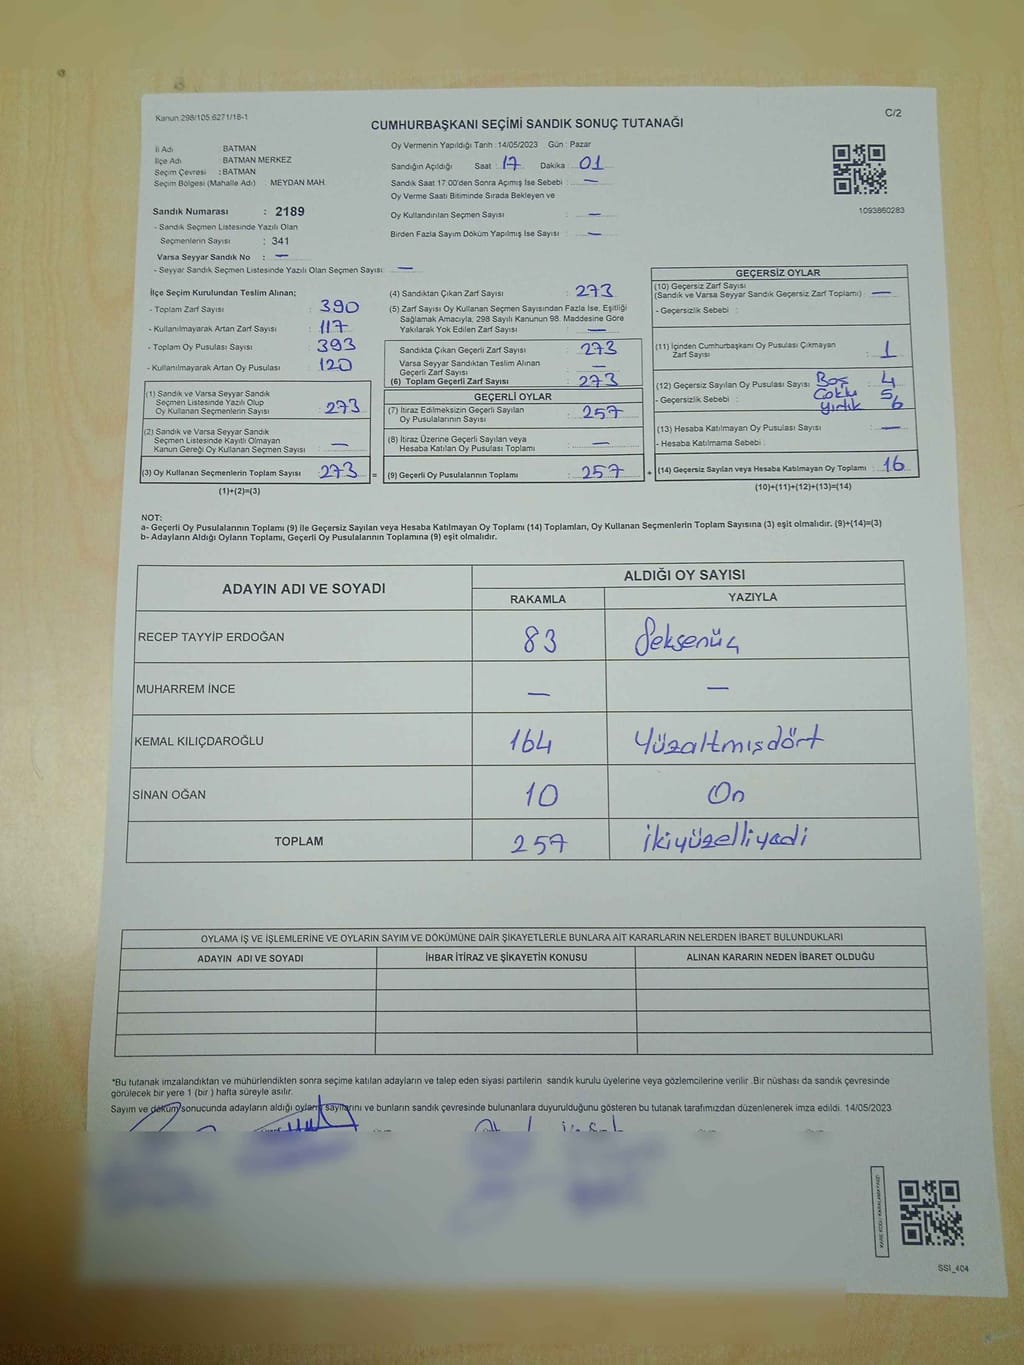 Kanun 298/105.6271/18-1
C/2
CUMHURBAŞKANI SEÇİMİ SANDIK SONUÇ TUTANAĞI
İl Adı : BATMAN
İlçe Adı : BATMAN MERKEZ
Seçim Çevresi : BATMAN
Seçim Bölgesi (Mahalle Adı) : MEYDAN MAH.
Sandık Numarası : 2189
- Sandık Seçmen Listesinde Yazılı Olan
Seçmenlerin Sayısı : 341
Varsa Seyyar Sandık No : —
- Seyyar Sandık Seçmen Listesinde Yazılı Olan Seçmen Sayısı: —
Oy Vermenin Yapıldığı Tarih :14/05/2023 Gün : Pazar
Sandığın Açıldığı Saat : 17 Dakika : 01
Sandık Saat 17:00'den Sonra Açmış İse Sebebi : —
Oy Verme Saati Bitiminde Sırada Bekleyen ve
Oy Kullandırılan Seçmen Sayısı : —
Birden Fazla Sayım Döküm Yapılmış İse Sayısı : —
1093860283
İlçe Seçim Kurulundan Teslim Alınan;
- Toplam Zarf Sayısı : 390
- Kullanılmayarak Artan Zarf Sayısı : 117
- Toplam Oy Pusulası Sayısı : 393
- Kullanılmayarak Artan Oy Pusulası : 120
(1) Sandık ve Varsa Seyyar Sandık
Seçmen Listesinde Yazılı Olup
Oy Kullanan Seçmenlerin Sayısı : 273
(2) Sandık ve Varsa Seyyar Sandık
Seçmen Listesinde Kayıtlı Olmayan
Kanun Gereği Oy Kullanan Seçmen Sayısı : —
(3) Oy Kullanan Seçmenlerin Toplam Sayısı : 273 =
(1)+(2)=(3)
(4) Sandıktan Çıkan Zarf Sayısı : 273
(5) Zarf Sayısı Oy Kullanan Seçmen Sayısından Fazla İse, Eşitliği
Sağlamak Amacıyla; 298 Sayılı Kanunun 98. Maddesine Göre
Yakılarak Yok Edilen Zarf Sayısı : —
Sandıkta Çıkan Geçerli Zarf Sayısı : 273
Varsa Seyyar Sandıktan Teslim Alınan
Geçerli Zarf Sayısı : —
(6) Toplam Geçerli Zarf Sayısı : 273
GEÇERLİ OYLAR
(7) İtiraz Edilmeksizin Geçerli Sayılan
Oy Pusulalarının Sayısı : 257
(8) İtiraz Üzerine Geçerli Sayılan veya
Hesaba Katılan Oy Pusulası Toplamı : —
(9) Geçerli Oy Pusulalarının Toplamı : 257 +
GEÇERSİZ OYLAR
(10) Geçersiz Zarf Sayısı
(Sandık ve Varsa Seyyar Sandık Geçersiz Zarf Toplamı) : —
- Geçersizlik Sebebi :
(11) İçinden Cumhurbaşkanı Oy Pusulası Çıkmayan
Zarf Sayısı : 1
(12) Geçersiz Sayılan Oy Pusulası Sayısı : Boş 4
- Geçersizlik Sebebi : Çoklu 5
Yırtık 6
(13) Hesaba Katılmayan Oy Pusulası Sayısı : —
- Hesaba Katılmama Sebebi :
(14) Geçersiz Sayılan veya Hesaba Katılmayan Oy Toplamı : 16
(10)+(11)+(12)+(13)=(14)
NOT:
a- Geçerli Oy Pusulalarının Toplamı (9) ile Geçersiz Sayılan veya Hesaba Katılmayan Oy Toplamı (14) Toplamları, Oy Kullanan Seçmenlerin Toplam Sayısına (3) eşit olmalıdır. (9)+(14)=(3)
b- Adayların Aldığı Oyların Toplamı, Geçerli Oy Pusulalarının Toplamına (9) eşit olmalıdır.
ADAYIN ADI VE SOYADI
ALDIĞI OY SAYISI
RAKAMLA YAZIYLA
RECEP TAYYİP ERDOĞAN 83 Seksenüç
MUHARREM İNCE — —
KEMAL KILIÇDAROĞLU 164 Yüzaltmışdört
SİNAN OĞAN 10 On
TOPLAM 257 ikiyüzelliyedi
OYLAMA İŞ VE İŞLEMLERİNE VE OYLARIN SAYIM VE DÖKÜMÜNE DAİR ŞİKAYETLERLE BUNLARA AİT KARARLARIN NELERDEN İBARET BULUNDUKLARI
ADAYIN ADI VE SOYADI İHBAR İTİRAZ VE ŞİKAYETİN KONUSU ALINAN KARARIN NEDEN İBARET OLDUĞU
*Bu tutanak imzalandıktan ve mühürlendikten sonra seçime katılan adayların ve talep eden siyasi partilerin sandık kurulu üyelerine veya gözlemcilerine verilir .Bir nüshası da sandık çevresinde
görülecek bir yere 1 (bir ) hafta süreyle asılır.
Sayım ve döküm sonucunda adayların aldığı oyların sayılarını ve bunların sandık çevresinde bulunanlara duyurulduğunu gösteren bu tutanak tarafımızdan düzenlenerek imza edildi. 14/05/2023
SSI_404